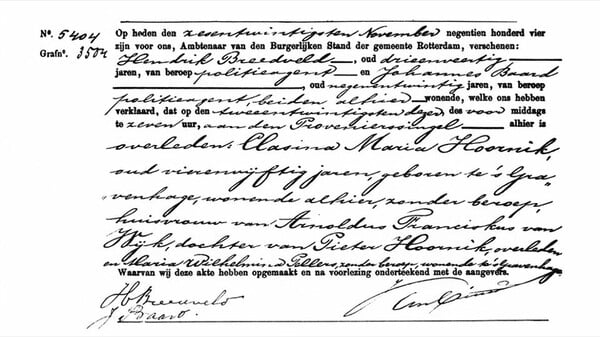 Nº. 5404
Grafnº. 3504
Op heden den zesentwintigsten November negentien honderd vier
zijn voor ons, Ambtenaar van den Burgerlijken Stand der gemeente Rotterdam, verschenen:
Hendrik Breedveld, oud drieenveertig
jaren, van beroep politieagent en Johannes Baard
, oud negenentwintig jaren, van beroep
politieagent, beiden alhier wonende, welke ons hebben
verklaard, dat op den tweeentwintigsten dezer, des voor middags
te zeven uur, aan den Provenierssingel alhier is
overleden: Clasina Maria Hoornik,
oud vierenvijftig jaren, geboren te 's Gra-
venhage, wonende alhier, zonder beroep,
huisvrouw van Arnoldus Franciskus van
Wijk, dochter van Pieter Hoornik, overleden
en Maria Wilhelmina Pellers, zonder beroep, wonende te 's Gravenhage.
Waarvan wij deze akte hebben opgemaakt en na voorlezing onderteekend met de aangevers.
H Breedveld
J Baard